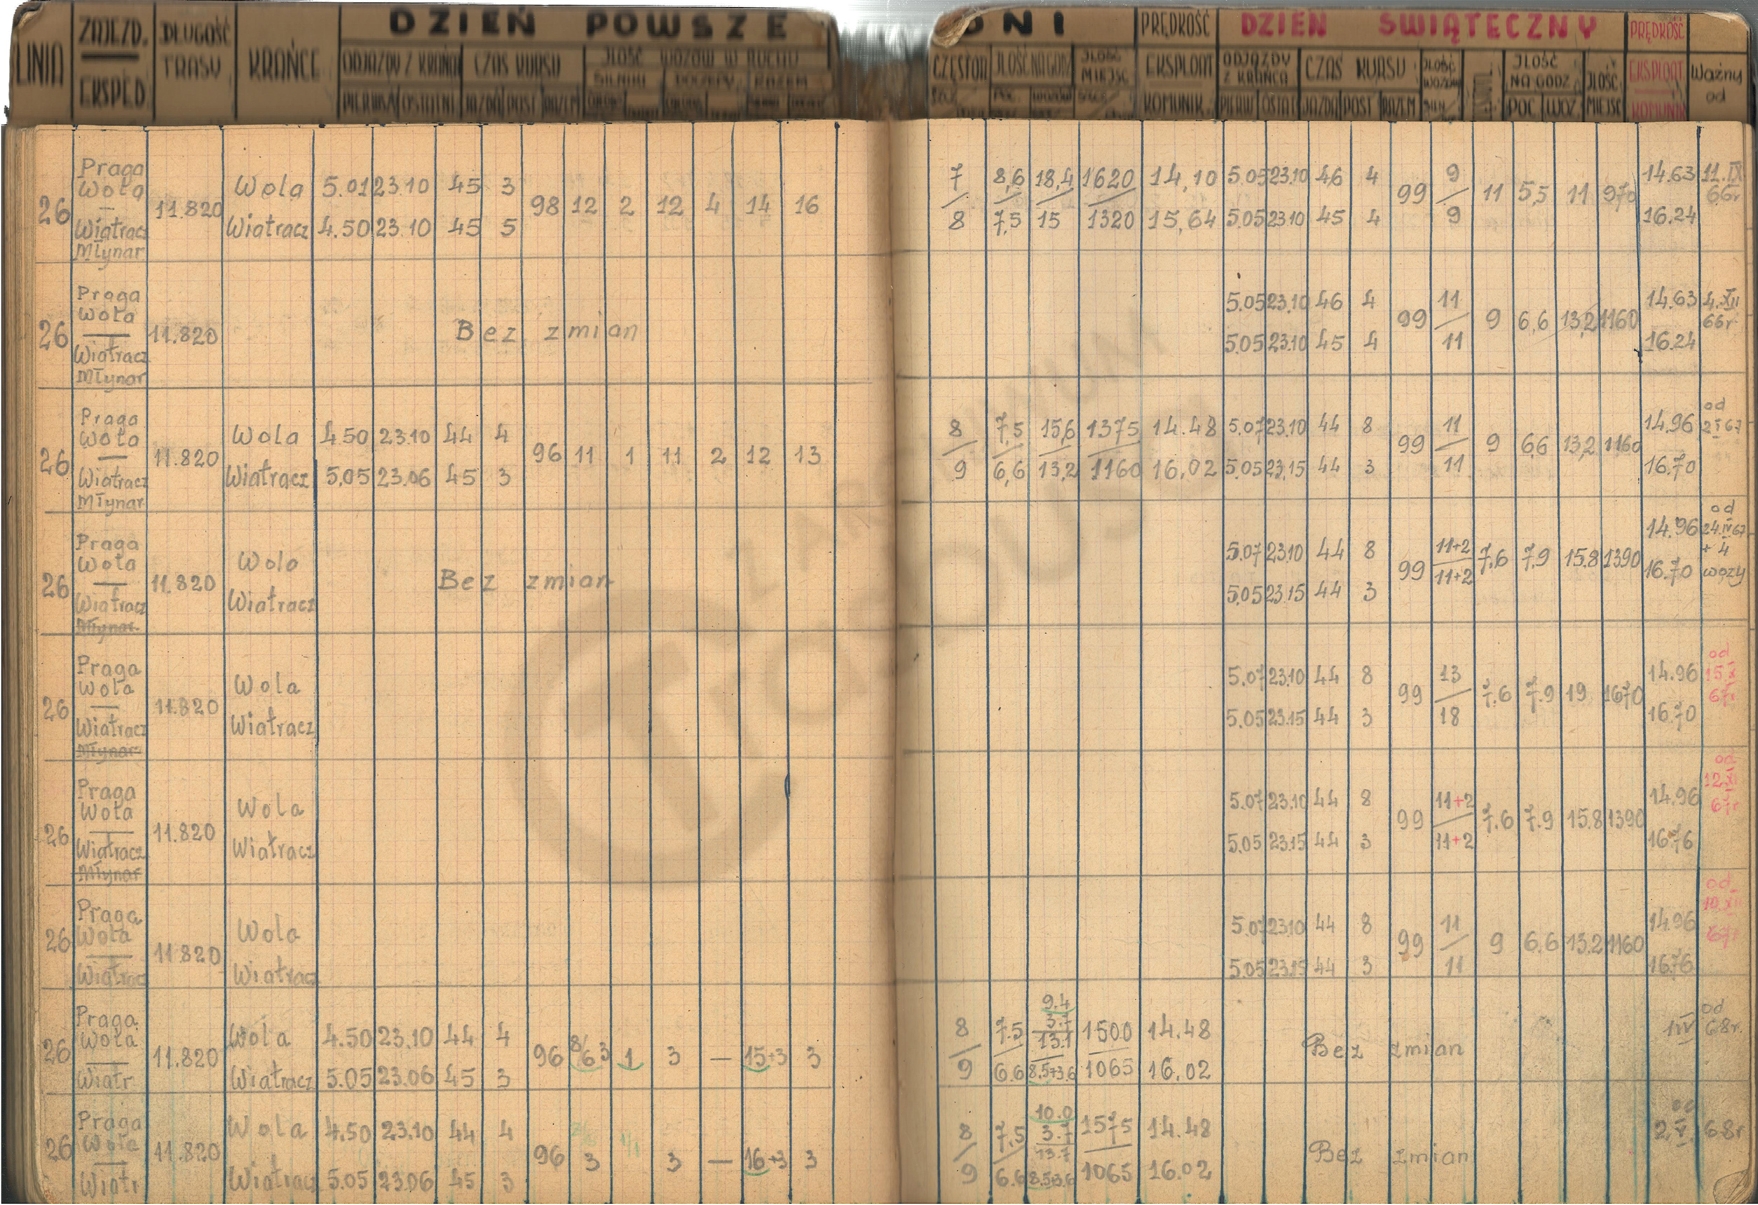 LINIA ZAJEZD. EKSPED. DŁUGOŚĆ TRASY KRAŃCE DZIEŃ POWSZE DNI PRĘDKOŚĆ EKSPLOAT KOMUNIK. DZIEŃ ŚWIĄTECZNY PRĘDKOŚĆ EKSPLOAT KOMUNIK Ważny od
ODJAZDY Z KRAŃCA CZAS KURSU ILOŚĆ WOZÓW W RUCHU ODJAZDY Z KRAŃCA CZAS KURSU JŁOŚĆ NA GODZ JŁOŚĆ MIEJSC
PIERWSZ OSTATNI JAZDA POST RAZEM PIERW OSTAT JAZDA POST RAZEM POC WOZ
Praga
Wola
Wiatracz
Młynar
26 11.820
Wola 5.01 23.10 45 3 98 12 2 12 4 14 16 7 8,6 18,4 1620 14,10 5.05 23.10 46 4 99 9 11 5,5 11 970 14.63 11.IX
Wiatracz 4.50 23.10 45 5 8 7,5 15 1320 15,64 5.05 23.10 45 4 9 16.24 66r
Praga
Wola
Wiatracz
Młynar
26 11.820 Bez zmian
5.05 23.10 46 4 99 11 9 6,6 13,2 1160 14.63 4.XII
5.05 23.10 45 4 11 16.24 66r
Praga
Wola
Wiatracz
Młynar
26 11.820
Wola 4.50 23.10 44 4 96 11 1 11 2 12 13 8 7,5 15,6 1375 14.48 5.07 23.10 44 8 99 11 9 6,6 13,2 1160 14,96 od
Wiatracz 5,05 23.06 45 3 9 6,6 13,2 1160 16,02 5.05 23.15 44 3 11 16.70
Praga
Wola
Wiatracz
Młynar
26 11.820
Wola
Wiatracz
Bez zmian
5.07 23.10 44 8 99 11+2 7,6 7,9 15.8 1390 14.96 od 24 IV 67
5.05 23.15 44 3 11+2 16.70 + 4 wozy
Praga
Wola
Wiatracz
Młynar
26 11.820
Wola
Wiatracz
5.07 23.10 44 8 99 13 7.6 7.9 19 1670 14.96 od
5.05 23.15 44 3 18 16.70
Praga
Wola
Wiatracz
Młynar
26 11.820
Wola
Wiatracz
5.07 23.10 44 8 99 11+2 7.6 7.9 15.8 1390 14.96 od
5.05 23.15 44 3 11+2 16.76
Praga
Wola
Wiatracz
26 11.820
Wola
Wiatracz
5.07 23.10 44 8 99 11 9 6,6 13.2 1160 14.96 od
5.05 23.15 44 3 11 16.76
Praga
Wola
Wiatr.
26 11.820
Wola 4.50 23.10 44 4 96 8/6 3 1 3 — 15+3 3 8 7.5 9.4 3.7 13.1 1500 14.48 Bez zmian od
Wiatracz 5.05 23.06 45 3 9 6.6 8.5+3.6 1065 16.02 1 IV 68r.
Praga
Wola
Wiatr
26 11.820
Wola 4.50 23.10 44 4 96 3 3 — 16+3 3 8 7,5 10.0 3.7 13.7 1575 14.48 Bez zmian od
Wiatracz 5.05 23.06 45 3 9 6.6 8.5+3.6 1065 16.02 2 V 68r